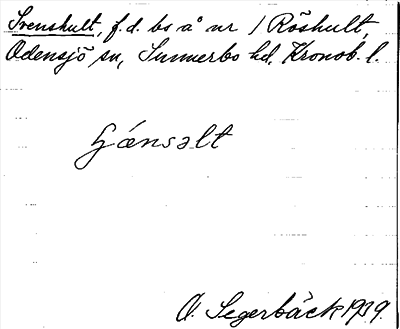 Svenshult, f.d. bs å nr 1 Röshult,
Odensjö sn, Sunnerbo hd. Kronob. l.
A. Segerbäck 1939.